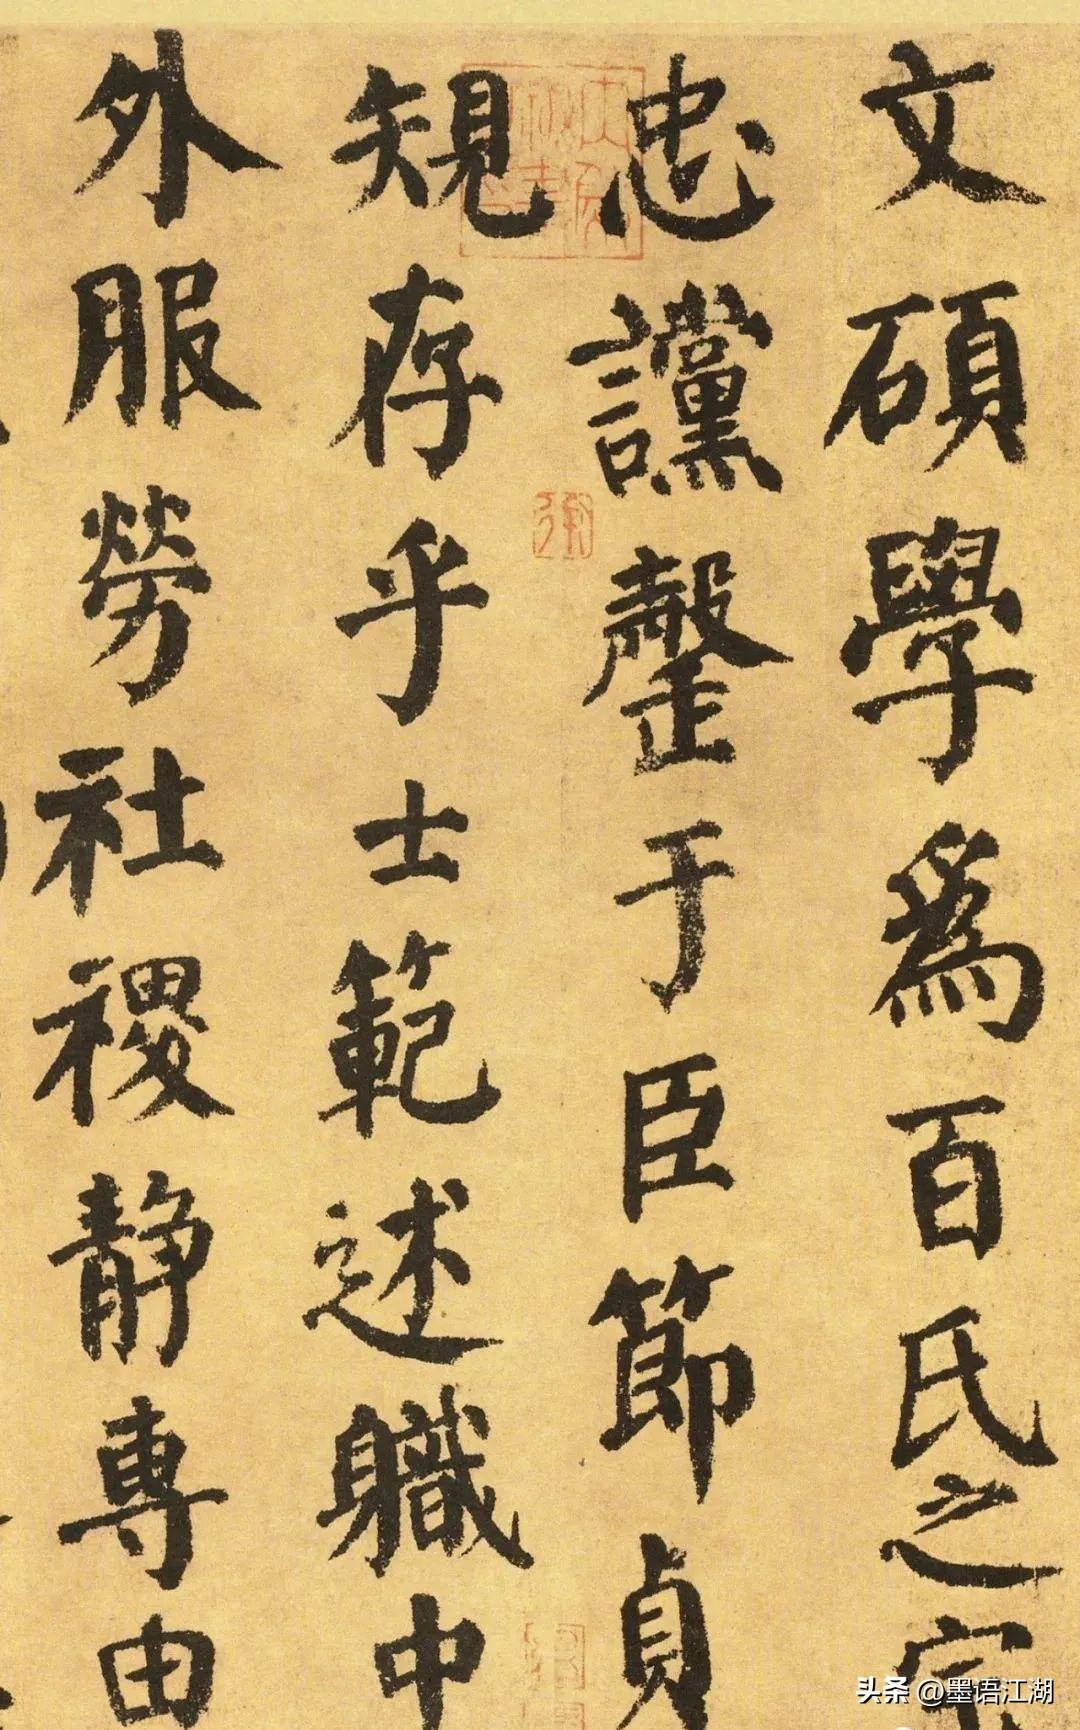 文碩學為百氏之宗
忠讜罄于臣節貞
規存乎士範述職中
外服勞社稷靜專由
头条 @墨语江湖